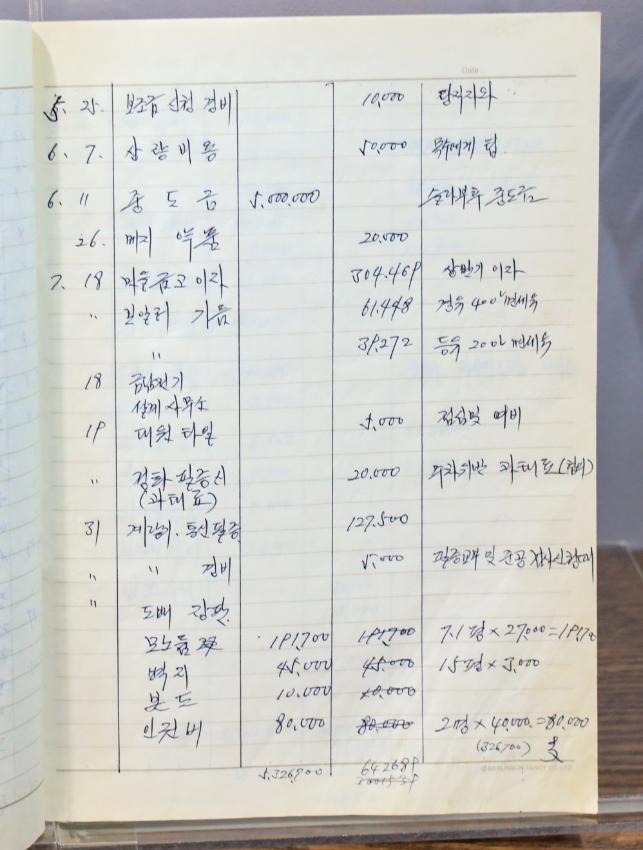 Date
5. 25. 보조금 신청 경비 10,000
6. 7. 상량비용 50,000 목수에게 팁
6. 11 중도금 5,000,000 슬라브목 중도금
26. 약품 20,000
7. 18 마을금고 이자 304.469 상반기 이자
" 보일러 기름 61.448 경유 400 면세유
" 39,272 등유 200 면세유
18 금남전기
설계사무소
19 대원타일 5,000 점심및 여비
" 정화 필증시 20,000 주차위반 과태료
(과태료)
31 계량기.통신필증 127,500
" " 경비 5,000 필증교부 및 준공
" 도배 장판
모노륨 191,700 191,700 7.1평 × 27,000 = 191,700
벽지 45,000 45,000 15평 × 3,000
본드 10,000 10,000
인건비 80,000 80,000 2명 × 40,000 = 80,000
(326,700)
5,326,700 642689